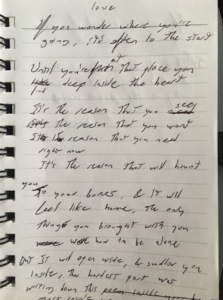 love
If you wonder where you're
going, it's often to the start
Until you're at that place you
deep inside the heart
It's the reason that you seek
the reason that you want
the reason that you need
right now
It's the reason that will haunt
you
To your bones, & It will
feel like home, the only
things you brought with you
how to be alone
But It will open wide, & swallow you
inside, the hardest part was
writing down this